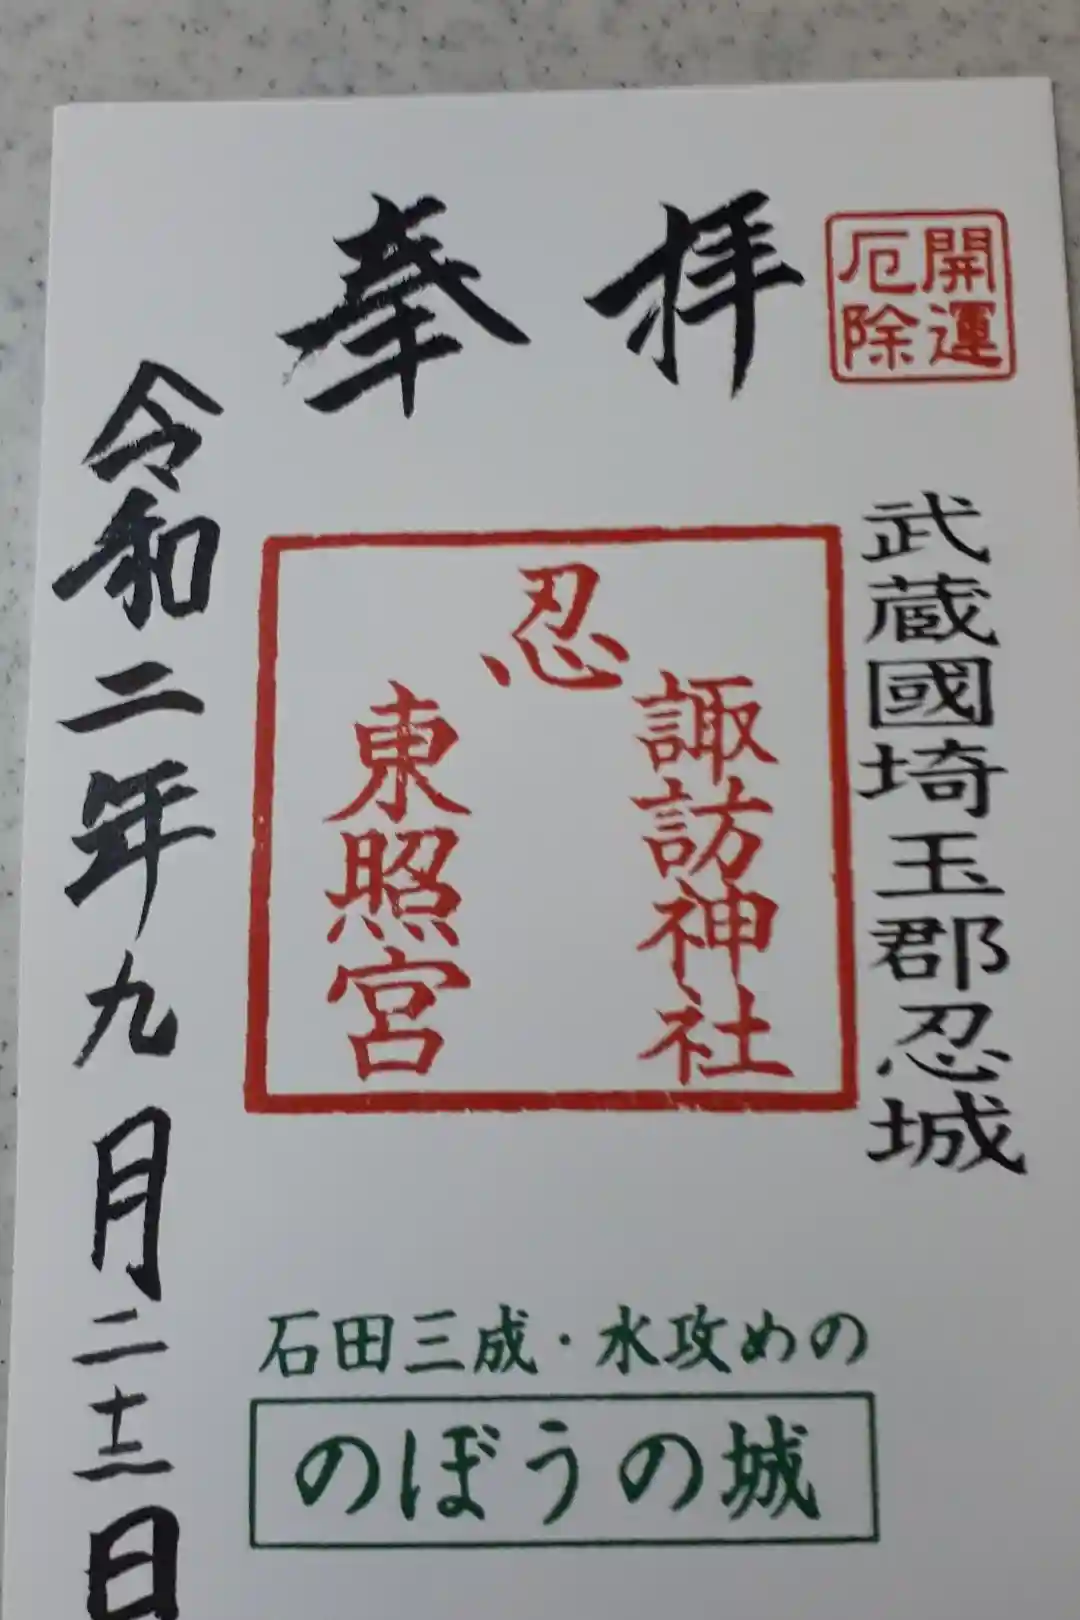 開運
厄除
奉拝
武蔵國埼玉郡忍城
忍
諏訪神社
東照宮
令和二年九月二十二日
石田三成・水攻めの
のぼうの城